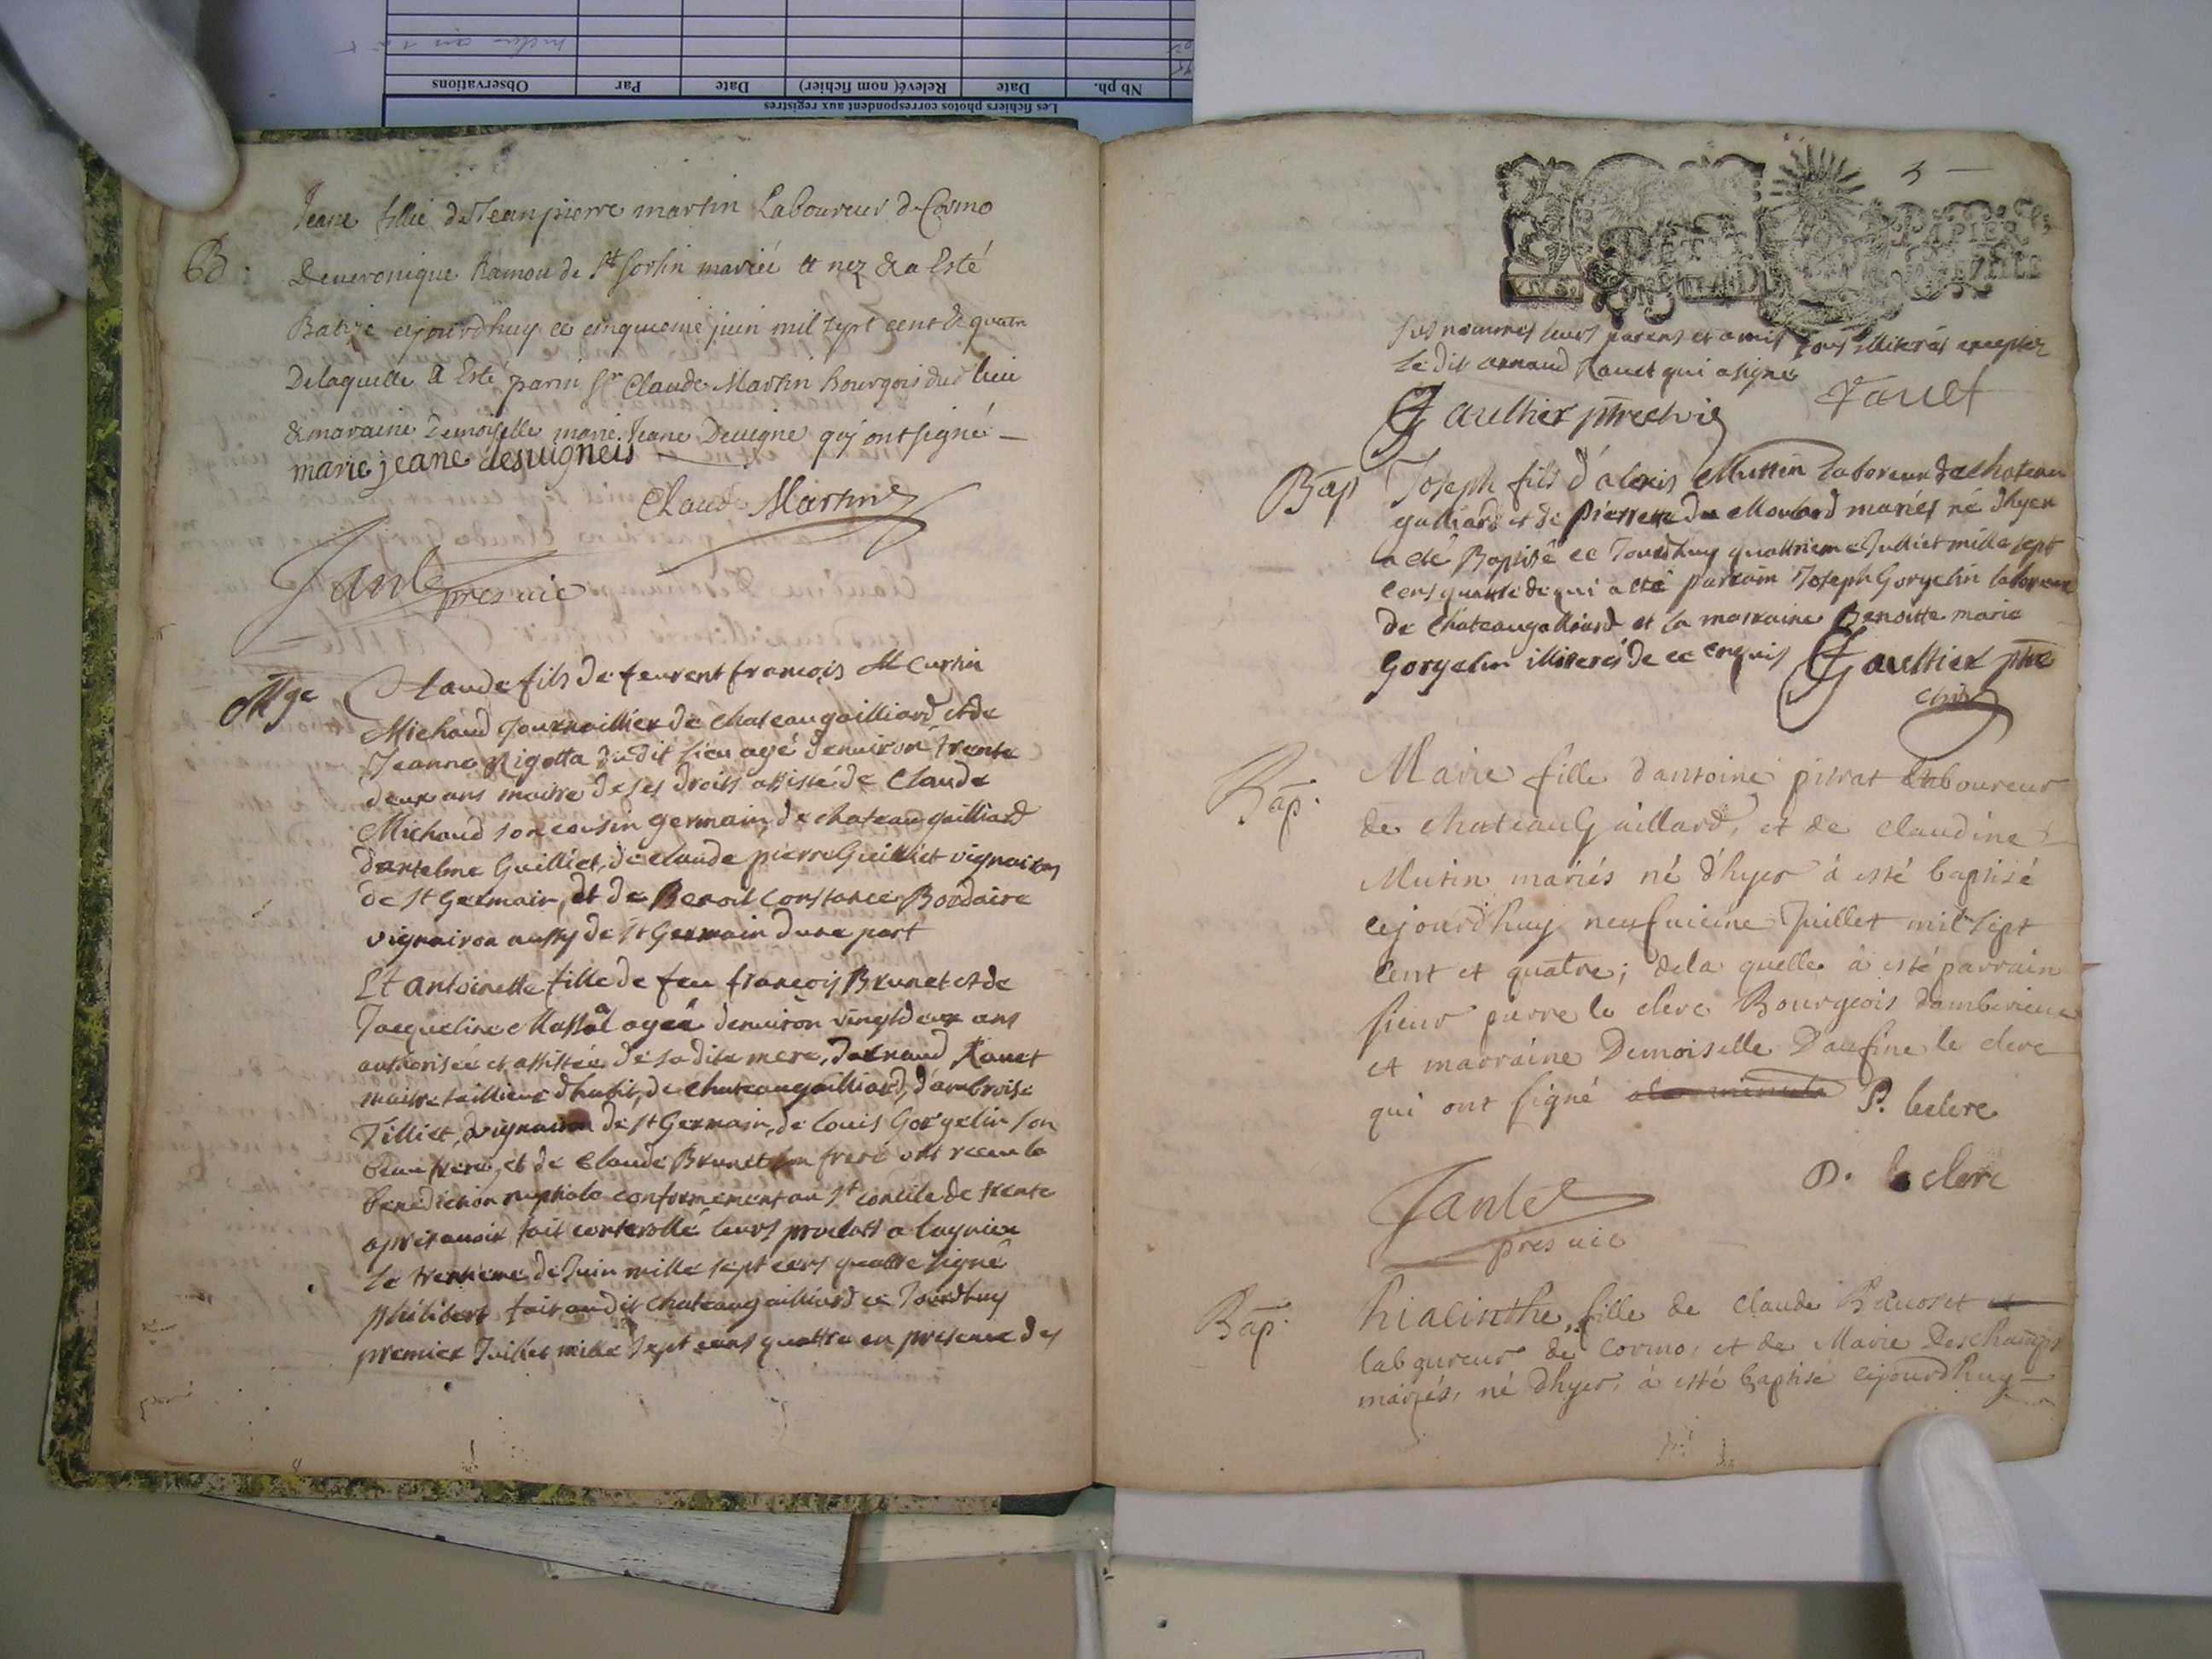 Observations
Par
Date
Relevé( nom fichier)
Date
Nb ph.
Les fichiers photos correspondent aux registres
B :
Jeane fillie de Jeanpierre martin Laboureur de Cormo
Deueronique Ramou de St Sorlin mariéé & nez & a Esté
Batizé cejourdhuy ce cinquieme juin mil sept cent & quatre
Delaquelle A Esté parin Sr Claude Martin Bourgois dud lieu
& maraine Demoiselle marie Jeane Deuigne quj ont signé —
marie jeane desuigneis
Claude Martin
Jantet
pres uic
Mge
Claude fils de feu rent francois Mcurtin
Michaud Journaillier de chateaugailliard et de
Jeanne Rigotta du dit lieu agé denuiron trente
deux ans maitre de ses droits assisté de Claude
Michaud son cousin germain de chateaugailliard
dantelme Guilliet, de claude pierre Guilliet vignairons
de St Germain, et de Benoit Constance Bordaire
vignairon aussy de St Germain dune part
Et antoinette fille de feu francois Brunet et de
Jacqueline Massal agée denuiron vingtdeux ans
authorisée et assistée de sadite mere, darnaud Rauet
maitre taillieur dhabit, de chateaugailliard, dambroise
Tilliet, vignairon de St Germain, de Louis Gorgelin son
beau frere, et de Claude Brunet son frere ont receu la
benediction nuptiale conformement au St concile de trente
apres auoir fait conterollé leurs proclats a lagnieu
le trentieme de Juin mille sept cens quattre signé
philibert fait audit chateaugailliard ce Jourdhuy
premier Juillet mille sept cens quattre en presence des
5 —
PETIT PAPIER
sus nommes leurs parens et amis tous illiterés excepter
Le dit arnaud Rauet qui a signé
Rauet
Gaulthier ptre
Bap
Joseph fils d'alexis Muttin laboreur de chateau
galliard et de pierrette du Moulard mariés né dhyer
a eté Baptisé ce Jourdhuy quattrieme Julliet mille sept
cens quattre de qui a eté parrain Joseph Gorgelin laboreur
de chateaugalliard et la marraine Benoitte marie
Gorgelin illiterés de ce enquis Gaulthier ptre
Bap.
Marie fille dantoine pitrat laboureur
de chateauGaillard, et de claudine
Mutin mariés né d'hyer à esté baptisé
cejourdhuy neufuieme Juillet mil sept
cent et quatre; dela quelle à esté parrain
sieur pierre le clerc Bourgeois damberieux
et marraine Demoiselle Daufine le clerc
qui ont signé a la minute P. leclerc
D. le clerc
Jantet
pres uic
Bap.
hiacinthe, fille de Claude Bauoset et
laboureur de Cormo, et de Marie Deschamps
mariés, né dhyer, à esté baptisé cejourdhuy —